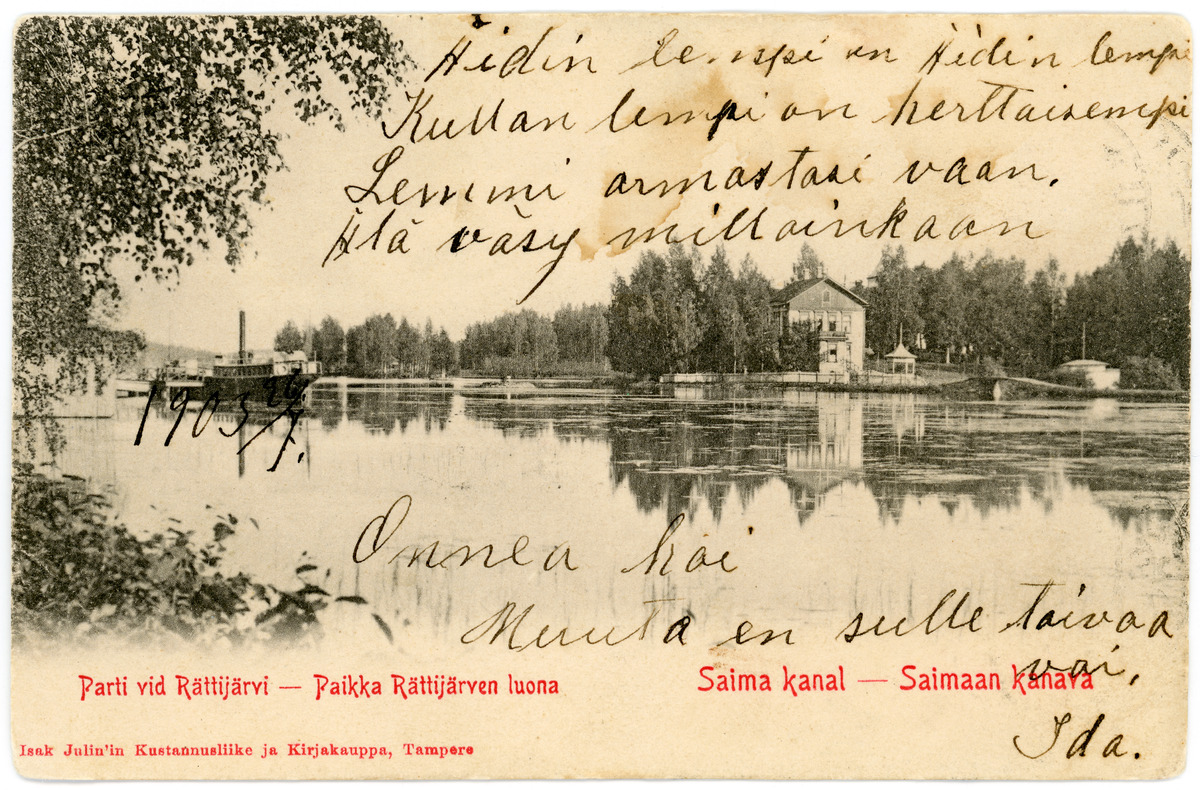 Äidin lempi on Äidin lempi
Kullan lempi on herttaisempi
Lemmi armastasi vaan.
Älä väsy milloinkaan
1903 26/7.
Onnea kai
Muuta en sulle toivoa
voi,
Ida.
Parti vid Rättijärvi — Paikka Rättijärven luona
Saima kanal — Saimaan kanava
Isak Julin'in Kustannusliike ja Kirjakauppa, Tampere